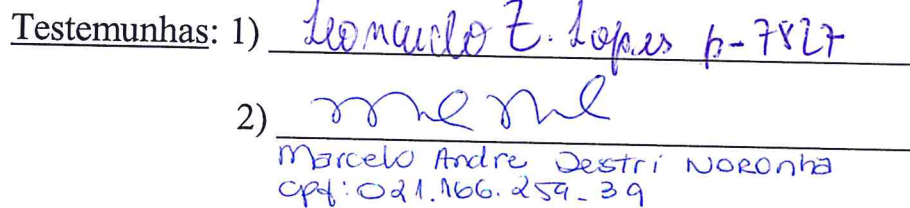 Testemunhas: 1) Leonardo Z. Lopes p-7827
2)
Marcelo Andre Destri Noronha
cpf: 021.166.259-39